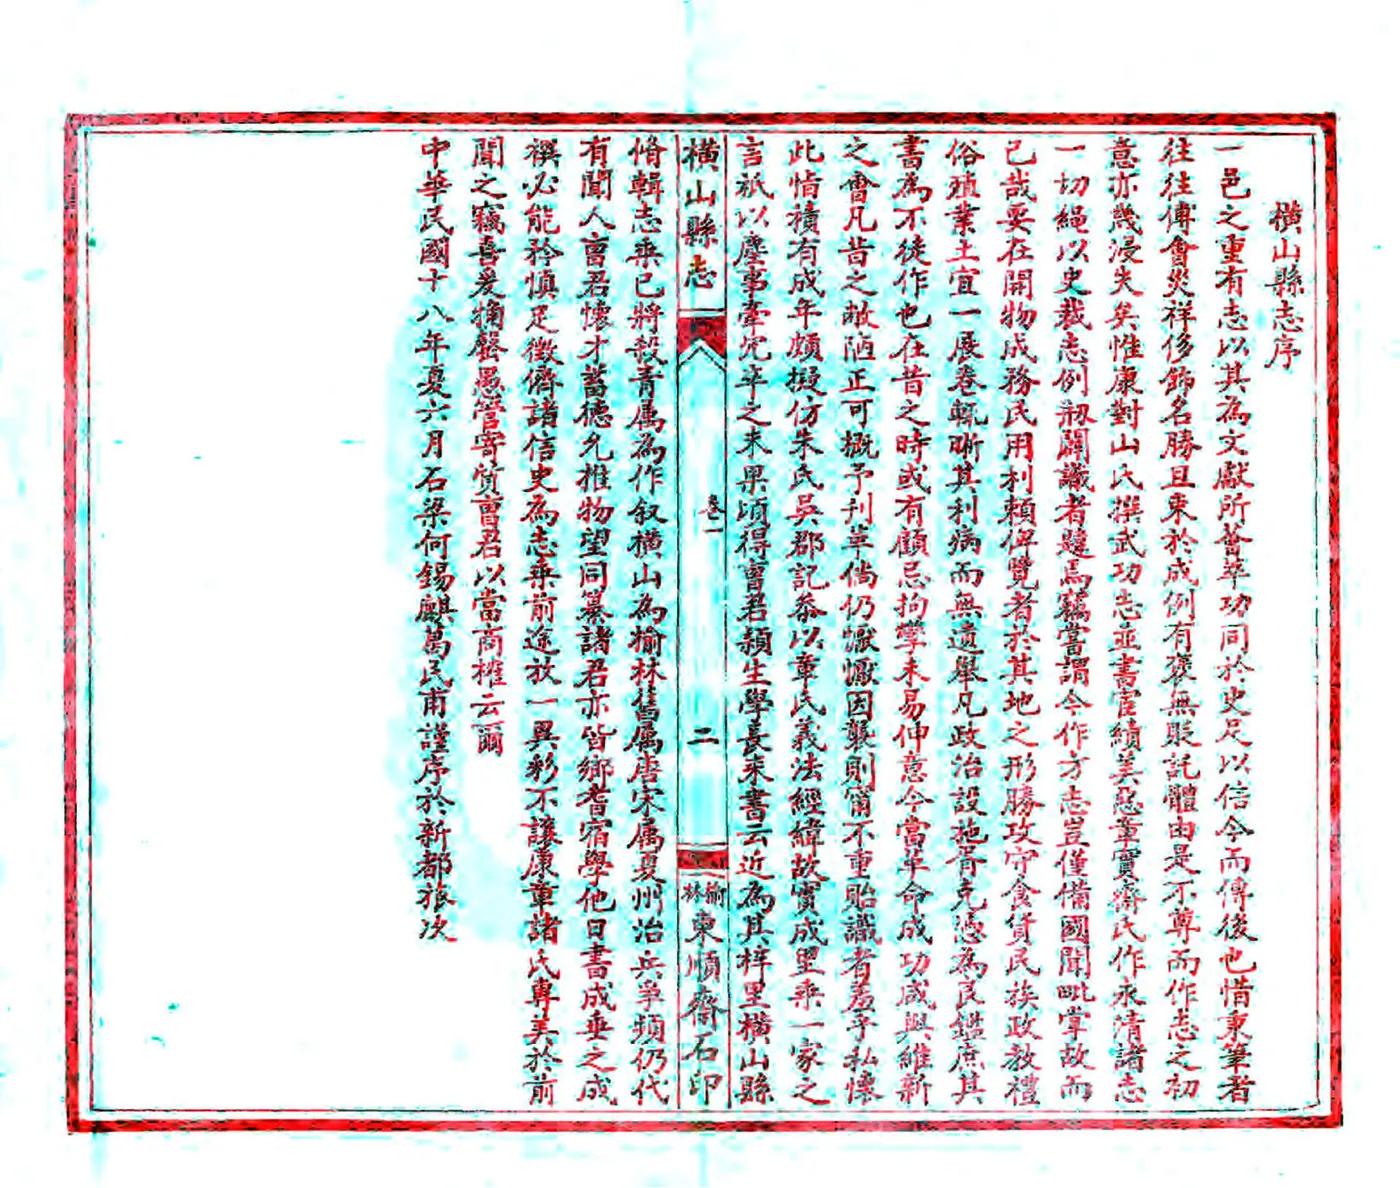 橫山縣志序
一邑之重有志以其為文獻所薈萃功同於史足以信今而傳後也惜秉筆者
往往傅會災祥侈飾名勝且束於成例有褒無貶託體由是不尊而作志之初
意亦幾浸失矣惟康對山氏撰武功志並書宦績美惡章實齋氏作永清諸志
一切繩以史裁志例剏闢識者韙焉竊嘗謂今作方志豈僅備國聞毗掌故而
已哉要在開物成務民用利賴俾覽者於其地之形勝攻守食貨民族政教禮
俗殖業土宜一展卷輒晰其利病而無遺舉凡政治設施胥克憑為良鑑庶其
書為不徒作也在昔之時或有顧忌拘攣未易伸意今當革命成功咸與維新
之會凡昔之敝陋正可概予刊革倘仍懨懨因襲則甯不重貽識者羞乎私懷
此悁積有成年頗擬仿朱氏吳郡記叅以章氏義法經緯故實成里乘一家之
言祇以塵事牽宂卒之未果頃得曹君頴生學長來書云近為其梓里橫山縣
橫山縣志
卷一
二
榆林東順齋石印
脩輯志乘已將殺青属為作叙橫山為榆林舊属唐宋属夏州治兵爭頻仍代
有聞人曹君懷才蓄德允推物望同纂諸君亦皆鄉耆宿學他日書成垂之成
襈必能矜慎足徵儕諸信史為志乘前途放一異彩不讓康章諸氏專美於前
聞之竊喜爰掬罄愚管寄質曹君以當商榷云爾
中華民國十八年夏六月石梁何錫麒萬民甫謹序於新都旅次